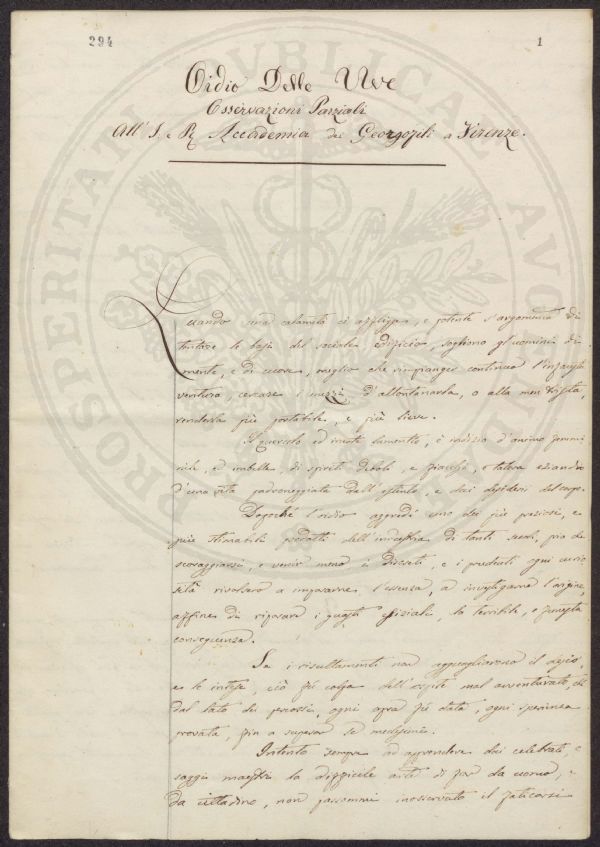 294
1
Oidio Delle Uve
Osservazioni Parziali
All' I. e R. Accademia dei Georgofili a Firenze.
PROSPERITATI PUBLICAE
Quando una calamità ci affligge, e potente s'argomenta di
tentare le basi del sociale edifizio, sogliono gl'uomini di
mente, e di cuore, meglio che rimpianger continuo l'infausta
ventura, cercare i mezzi d'allontanarla, o alla men trista,
renderla più portabile, e più lieve.
Il querulo ed inerte lamentio, è indizio d'animo femmi
nile, ed imbelle, di spiriti deboli, e fiacchi, e talora eziandio
d'una vita padroneggiata dall' , e dei desiderii del corpo.
Dopoché l'oidio aggredì uno dei più preziosi, e
più stimabili prodotti dell'industria di tanti secoli, pria di
scoraggiarsi, e venir meno i Dissesti, e i prudenti ogni curio
sità rivolsero a imparare l'essenza, a investigarne l'origine
affine di riparare i guasti parziali, la terribile, e funesta
conseguenza.
Se i risultamenti non appagliarono il desio,
e le intese, ciò fu colpa dell'ospite mal avventurato, che
dal lato dei percossi, ogni opra fu data, ogni sperienza
provata, fin a superar se medesimi.
Intento sempre ad apprendere dai celebrati, e
saggi maestri la difficile arte di far da uomo, e
da cittadino, non passommi inosservato il faticarsi